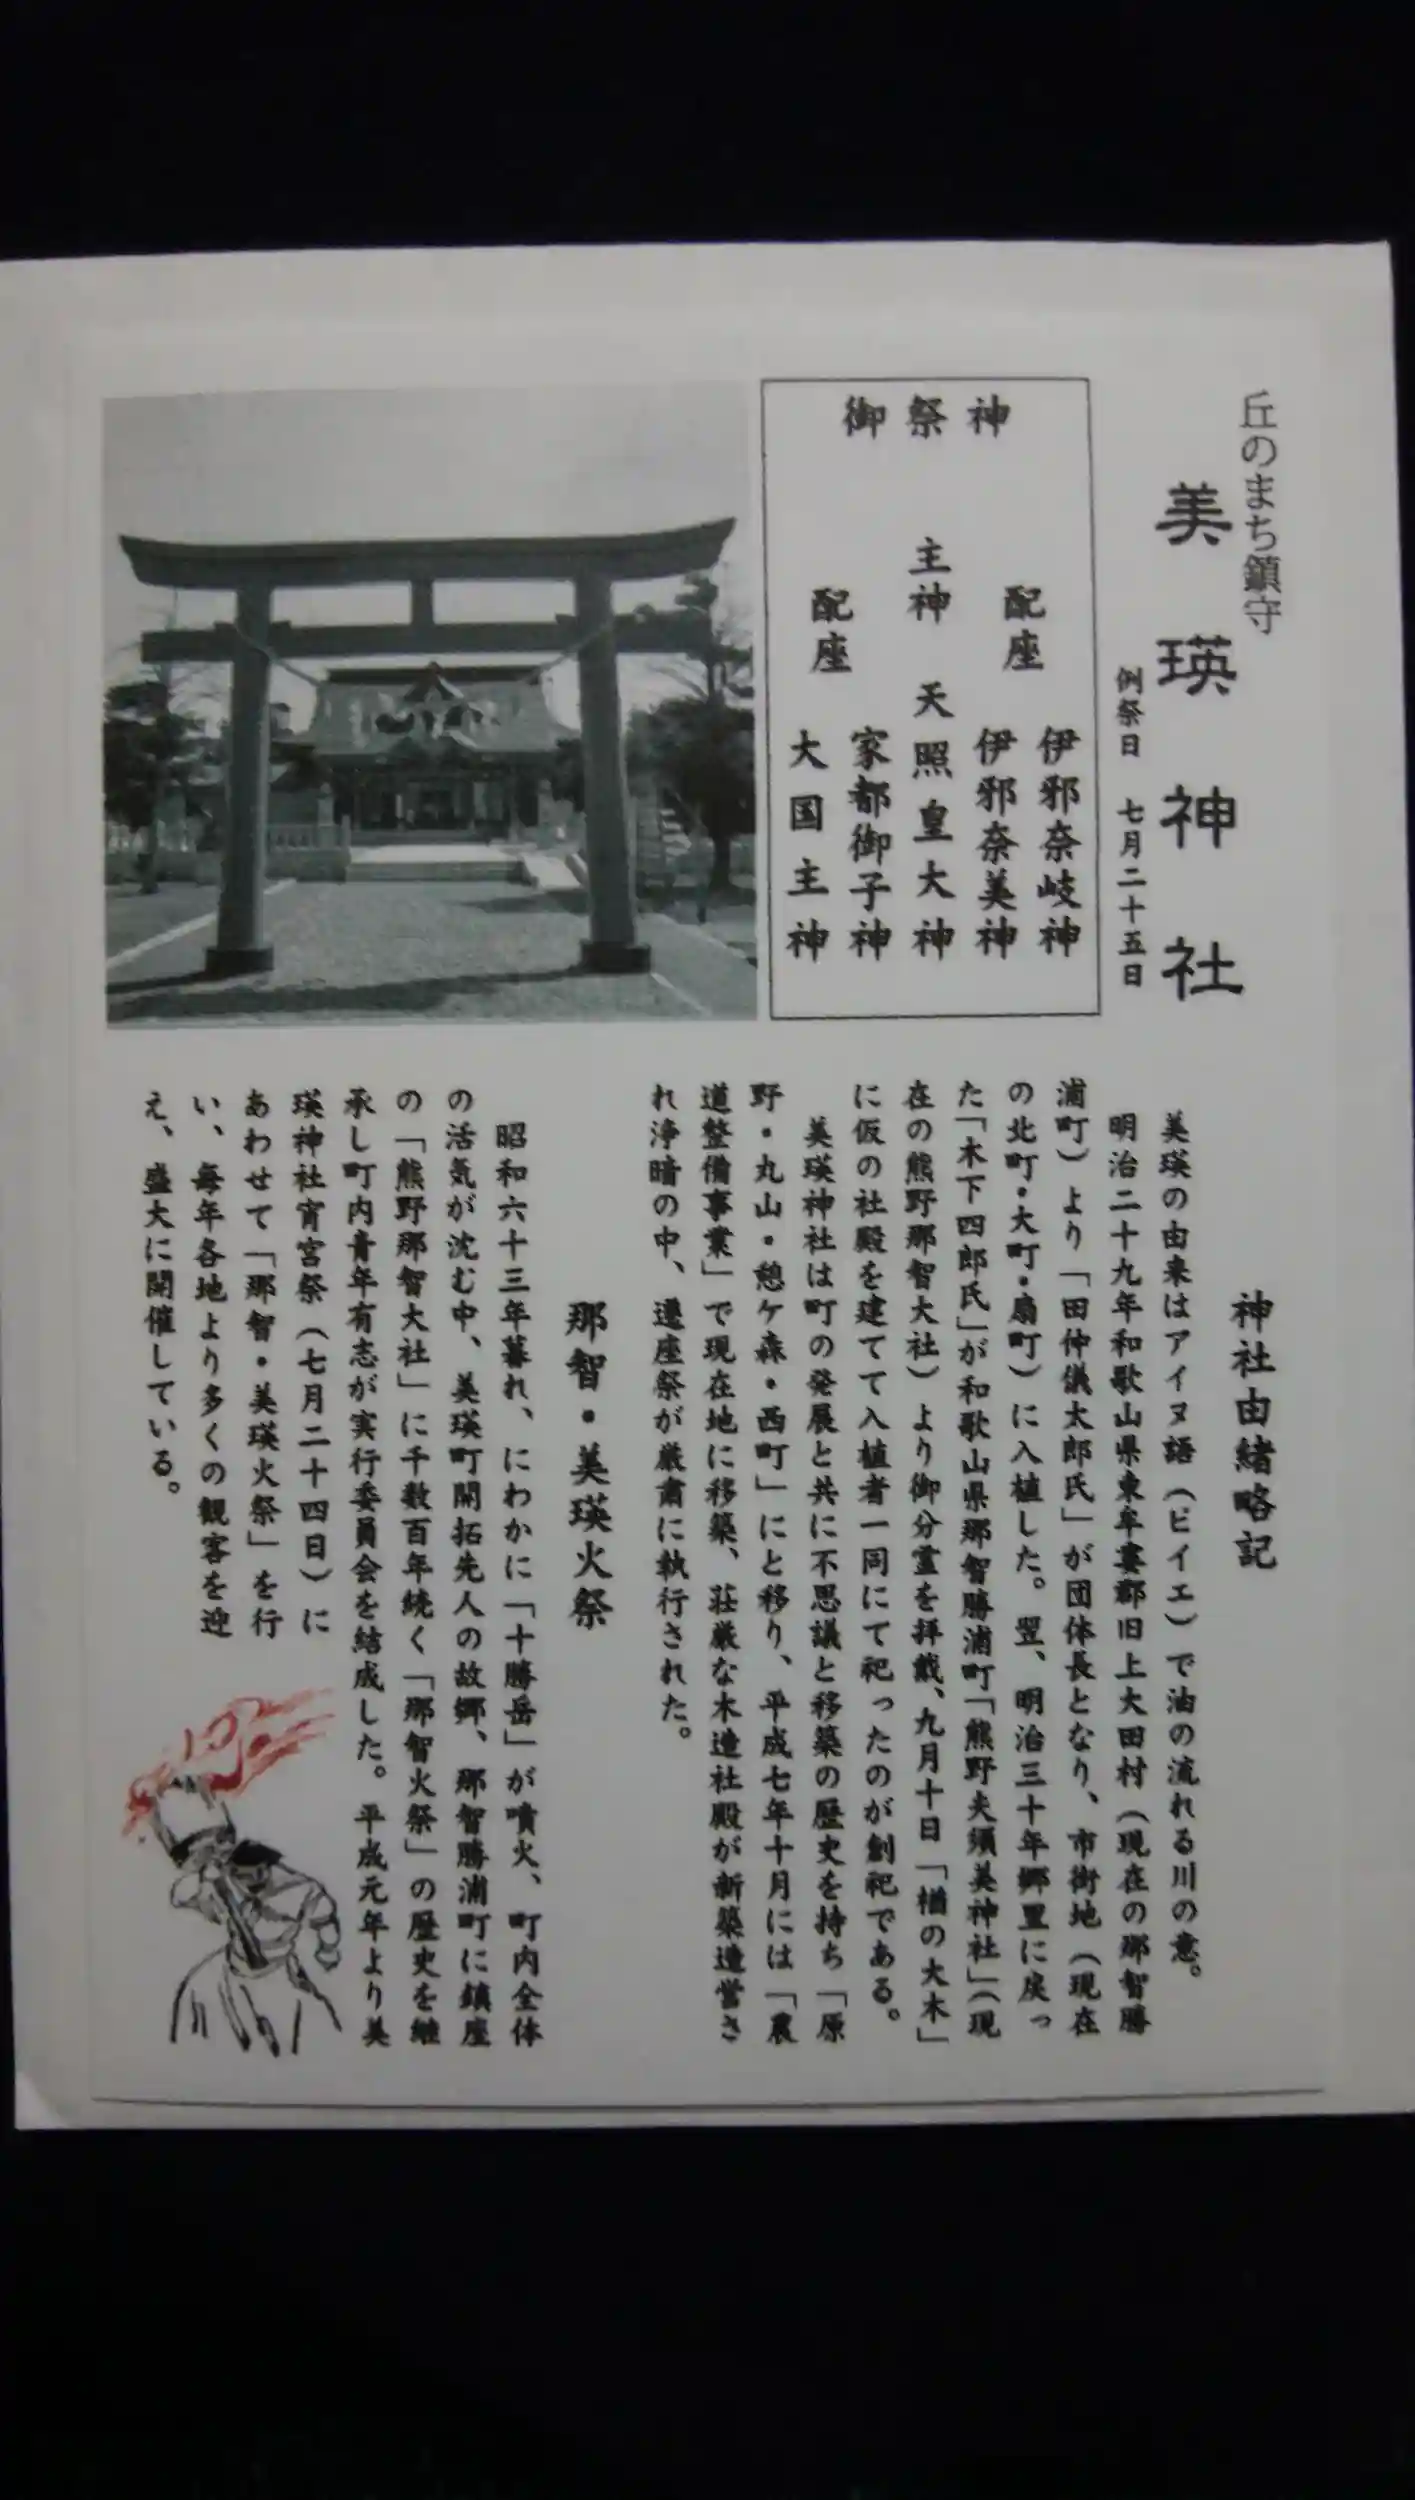 丘のまち鎮守
美瑛神社
例祭日　七月二十五日
御祭神
配座　伊邪奈岐神
伊邪奈美神
主神　天照皇大神
配座　家都御子神
大国主神
神社由緒略記
美瑛の由来はアイヌ語（ピイエ）で油の流れる川の意。
明治二十九年和歌山県東牟婁郡旧上大田村（現在の那智勝
浦町）より「田仲儀太郎氏」が団体長となり、市街地（現在
の北町・大町・扇町）に入植した。翌、明治三十年郷里に戻っ
た「木下四郎氏」が和歌山県那智勝浦町「熊野夫須美神社」（現
在の熊野那智大社）より御分霊を拝戴、九月十日「楢の大木」
に仮の社殿を建てて入植者一同にて祀ったのが創祀である。
美瑛神社は町の発展と共に不思議と移築の歴史を持ち「原
野・丸山・憩ケ森・西町」にと移り、平成七年十月には「農
道整備事業」で現在地に移築、荘厳な木造社殿が新築造営さ
れ浄暗の中、遷座祭が厳粛に執行された。
那智・美瑛火祭
昭和六十三年暮れ、にわかに「十勝岳」が噴火、町内全体
の活気が沈む中、美瑛町開拓先人の故郷、那智勝浦町に鎮座
の「熊野那智大社」に千数百年続く「那智火祭」の歴史を継
承し町内青年有志が実行委員会を結成した。平成元年より美
瑛神社宵宮祭（七月二十四日）に
あわせて「那智・美瑛火祭」を行
い、毎年各地より多くの観客を迎
え、盛大に開催している。